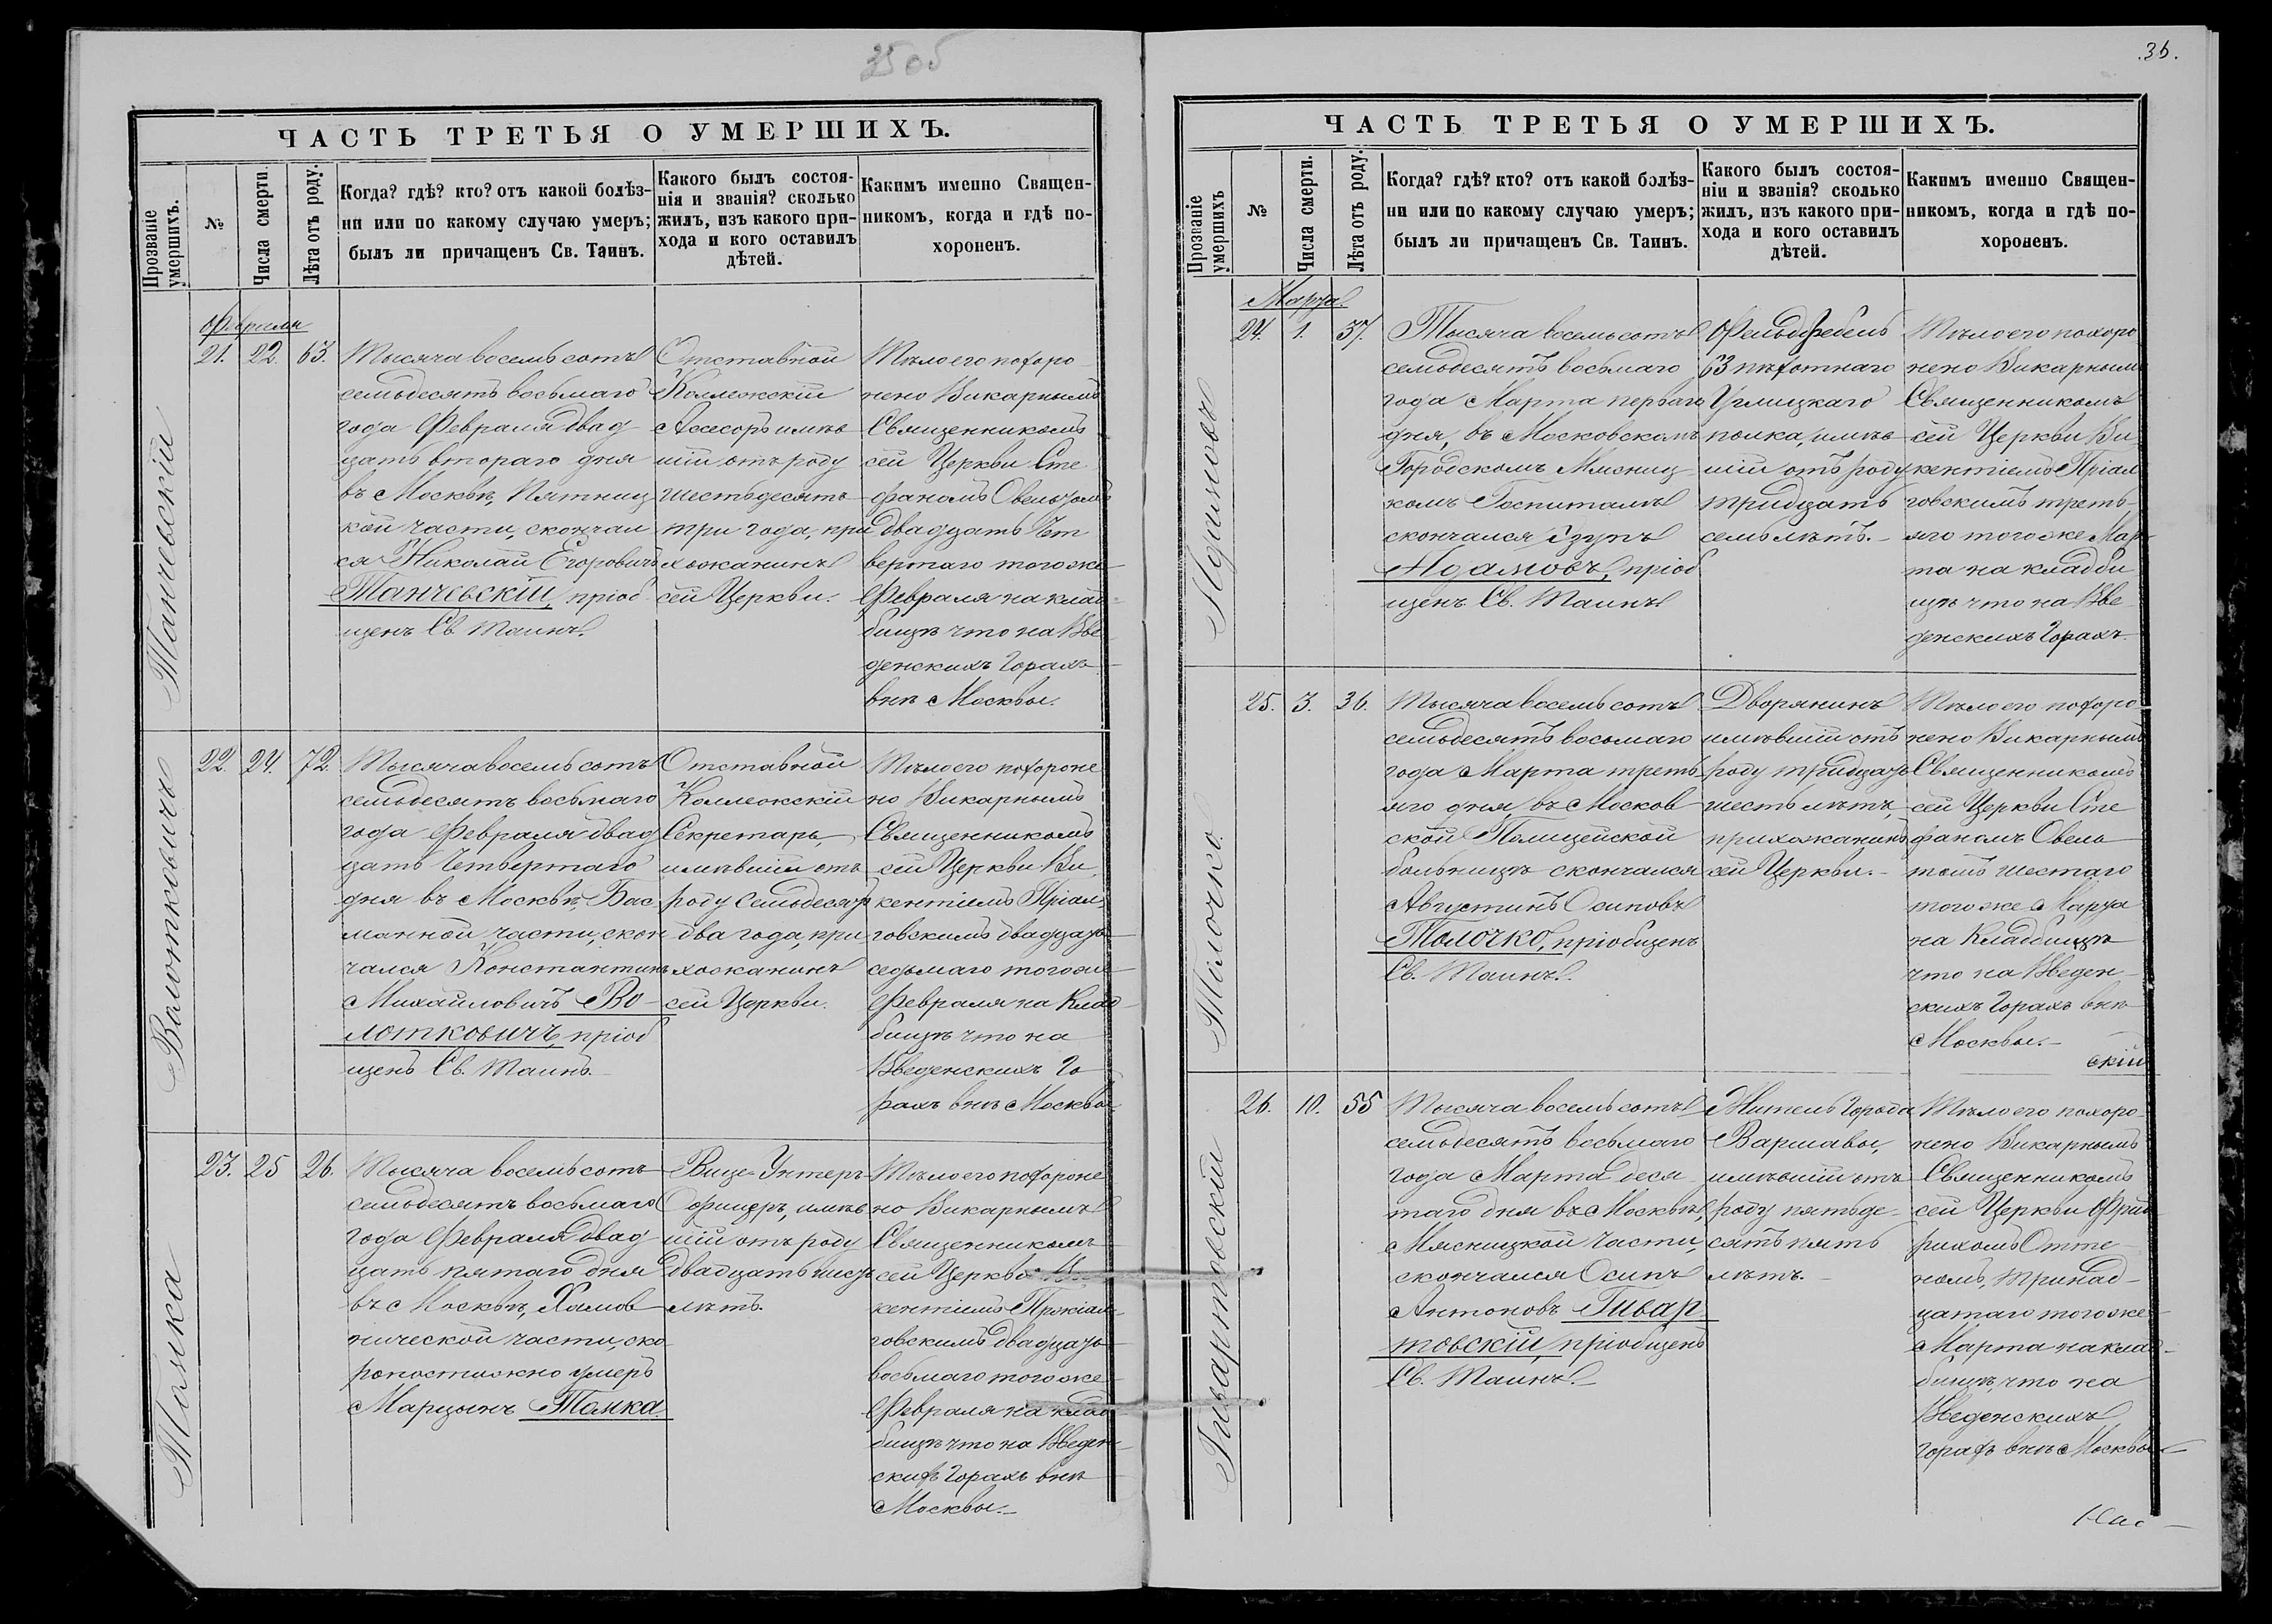 35 об
ЧАСТЬ ТРЕТЬЯ О УМЕРШИХЪ.
Прозваніе умершихъ.
№
Числа смерти.
Лѣта отъ роду.
Когда? гдѣ? кто? отъ какой болѣз-
ни или по какому случаю умеръ;
былъ ли причащенъ Св. Таинъ.
Какого былъ состоя-
нія и званія? сколько
жилъ, изъ какого при-
хода и кого оставилъ
дѣтей.
Какимъ именно Священ-
никомъ, когда и гдѣ по-
хороненъ.
Февраля
Танчевскій
21. 22. 63.
Тысяча восемь сотъ
семьдесятъ восьмаго
года Февраля двад
цать втораго дня
въ Москвѣ, Пятниц
кой части, скончал
ся Николай Егоровичъ
Танчевскій, пріоб
щенъ Св. Таинъ.
Отставной
Коллежскій
Ассесоръ имѣв
шій отъ роду
шестьдесятъ
три года, при
хожанинъ
сей Церкви.
Тѣло его похоро
нено Викарнымъ
Священникомъ
сей Церкви Сте
фаномъ Овельтомъ
двадцать Чет
вертаго того же
Февраля на клад
бищѣ что на Вве
денскихъ Горахъ
внѣ Москвы.
Волотковичъ
22. 24. 72.
Тысяча восемь сотъ
семьдесятъ восьмаго
года Февраля двад
цать Четвертаго
дня въ Москвѣ, Бас
манной части, скон
чался Константинъ
Михайловичъ Во-
лотковичъ, пріоб
щенъ Св. Таинъ.
Отставной
Коллежскій
Секретарь,
имѣвшій отъ
роду Семьдесятъ
два года, при
хожанинъ
сей Церкви.
Тѣло его похороне
но Викарнымъ
Священникомъ
сей Церкви Ви
кентіемъ Пріал
говскимъ двадцать
седьмаго того же
Февраля на Клад
бищѣ что на
Введенскихъ Го
рахъ внѣ Москвы
Томка
23. 25 26.
Тысяча восемь сотъ
семьдесятъ восьмаго
года Февраля двад
цать пятаго дня
въ Москвѣ, Хамов
нической части, ско
ропостижно умеръ
Марцынъ Томка.
Вице-Унтеръ-
Офицеръ, имѣв
шій отъ роду
двадцать шесть
лѣтъ.
Тѣло его похороне
но Викарнымъ
Священникомъ
сей Церкви Ви
кентіемъ Пржіал-
говскимъ двадцать
восьмаго того же
Февраля на клад
бищѣ что на Введен
скихъ Горахъ внѣ
Москвы.
36.
ЧАСТЬ ТРЕТЬЯ О УМЕРШИХЪ.
Прозваніе умершихъ
№
Числа смерти.
Лѣта отъ роду.
Когда? гдѣ? кто? отъ какой болѣз-
ни или по какому случаю умеръ;
былъ ли причащенъ Св. Таинъ.
Какого былъ состоя-
ніи и званія? сколько
жилъ, изъ какого при-
хода и кого оставилъ
дѣтей.
Какимъ именно Священ-
никомъ, когда и гдѣ по-
хороненъ.
Марта.
Адамовъ
24. 1. 37.
Тысяча восемь сотъ
семьдесятъ восьмаго
года Марта перваго
дня, въ Московскомъ
Городскомъ Мясниц
комъ Госпиталѣ
скончался
Адамовъ, пріоб
щенъ Св. Таинъ
Фельдфебель
63 пѣхотнаго
Углицкаго
полка, имѣв
шій отъ роду
тридцать
семь лѣтъ.
Тѣло его похоро
нено Викарнымъ
Священникомъ
сей Церкви Ви
кентіемъ Пріал
говскимъ треть
яго того же Мар
та на кладби
щѣ что на Вве
денскихъ Горахъ.
Толочко.
25. 3. 36.
Тысяча восемь сотъ
семьдесятъ восьмаго
года Марта треть
яго дня, въ Москов
ской Полицейской
больницѣ скончался
Августинъ Осиповъ
Толочко, пріобщенъ
Св. Таинъ.
Дворянинъ
имѣвшій отъ
роду тридцать
шесть лѣтъ,
прихожанинъ
сей Церкви.
Тѣло его похоро
нено Викарнымъ
Священникомъ
сей Церкви Сте
фаномъ Овель
томъ шестаго
того же Марта
на Кладбищѣ
что на Введен
скихъ Горахъ внѣ
Москвы.
скій
Гивартовскій
26. 10. 55
Тысяча восемь сотъ
семьдесятъ восьмаго
года Марта деся
таго дня въ Москвѣ,
Мясницкой части,
скончался Осипъ
Антоновъ Гивар
товскій, пріобщенъ
Св. Таинъ.
Житель Города
Варшавы,
имѣвшій отъ
роду пятьде-
сятъ пять
лѣтъ.
Тѣло его похоро
нено Викарнымъ
Священникомъ
сей Церкви Фрид
рихомъ Отте
номъ, Тринад-
цатаго того же
Марта на клад
бищѣ, что на
Введенскихъ
горахъ внѣ Москвы